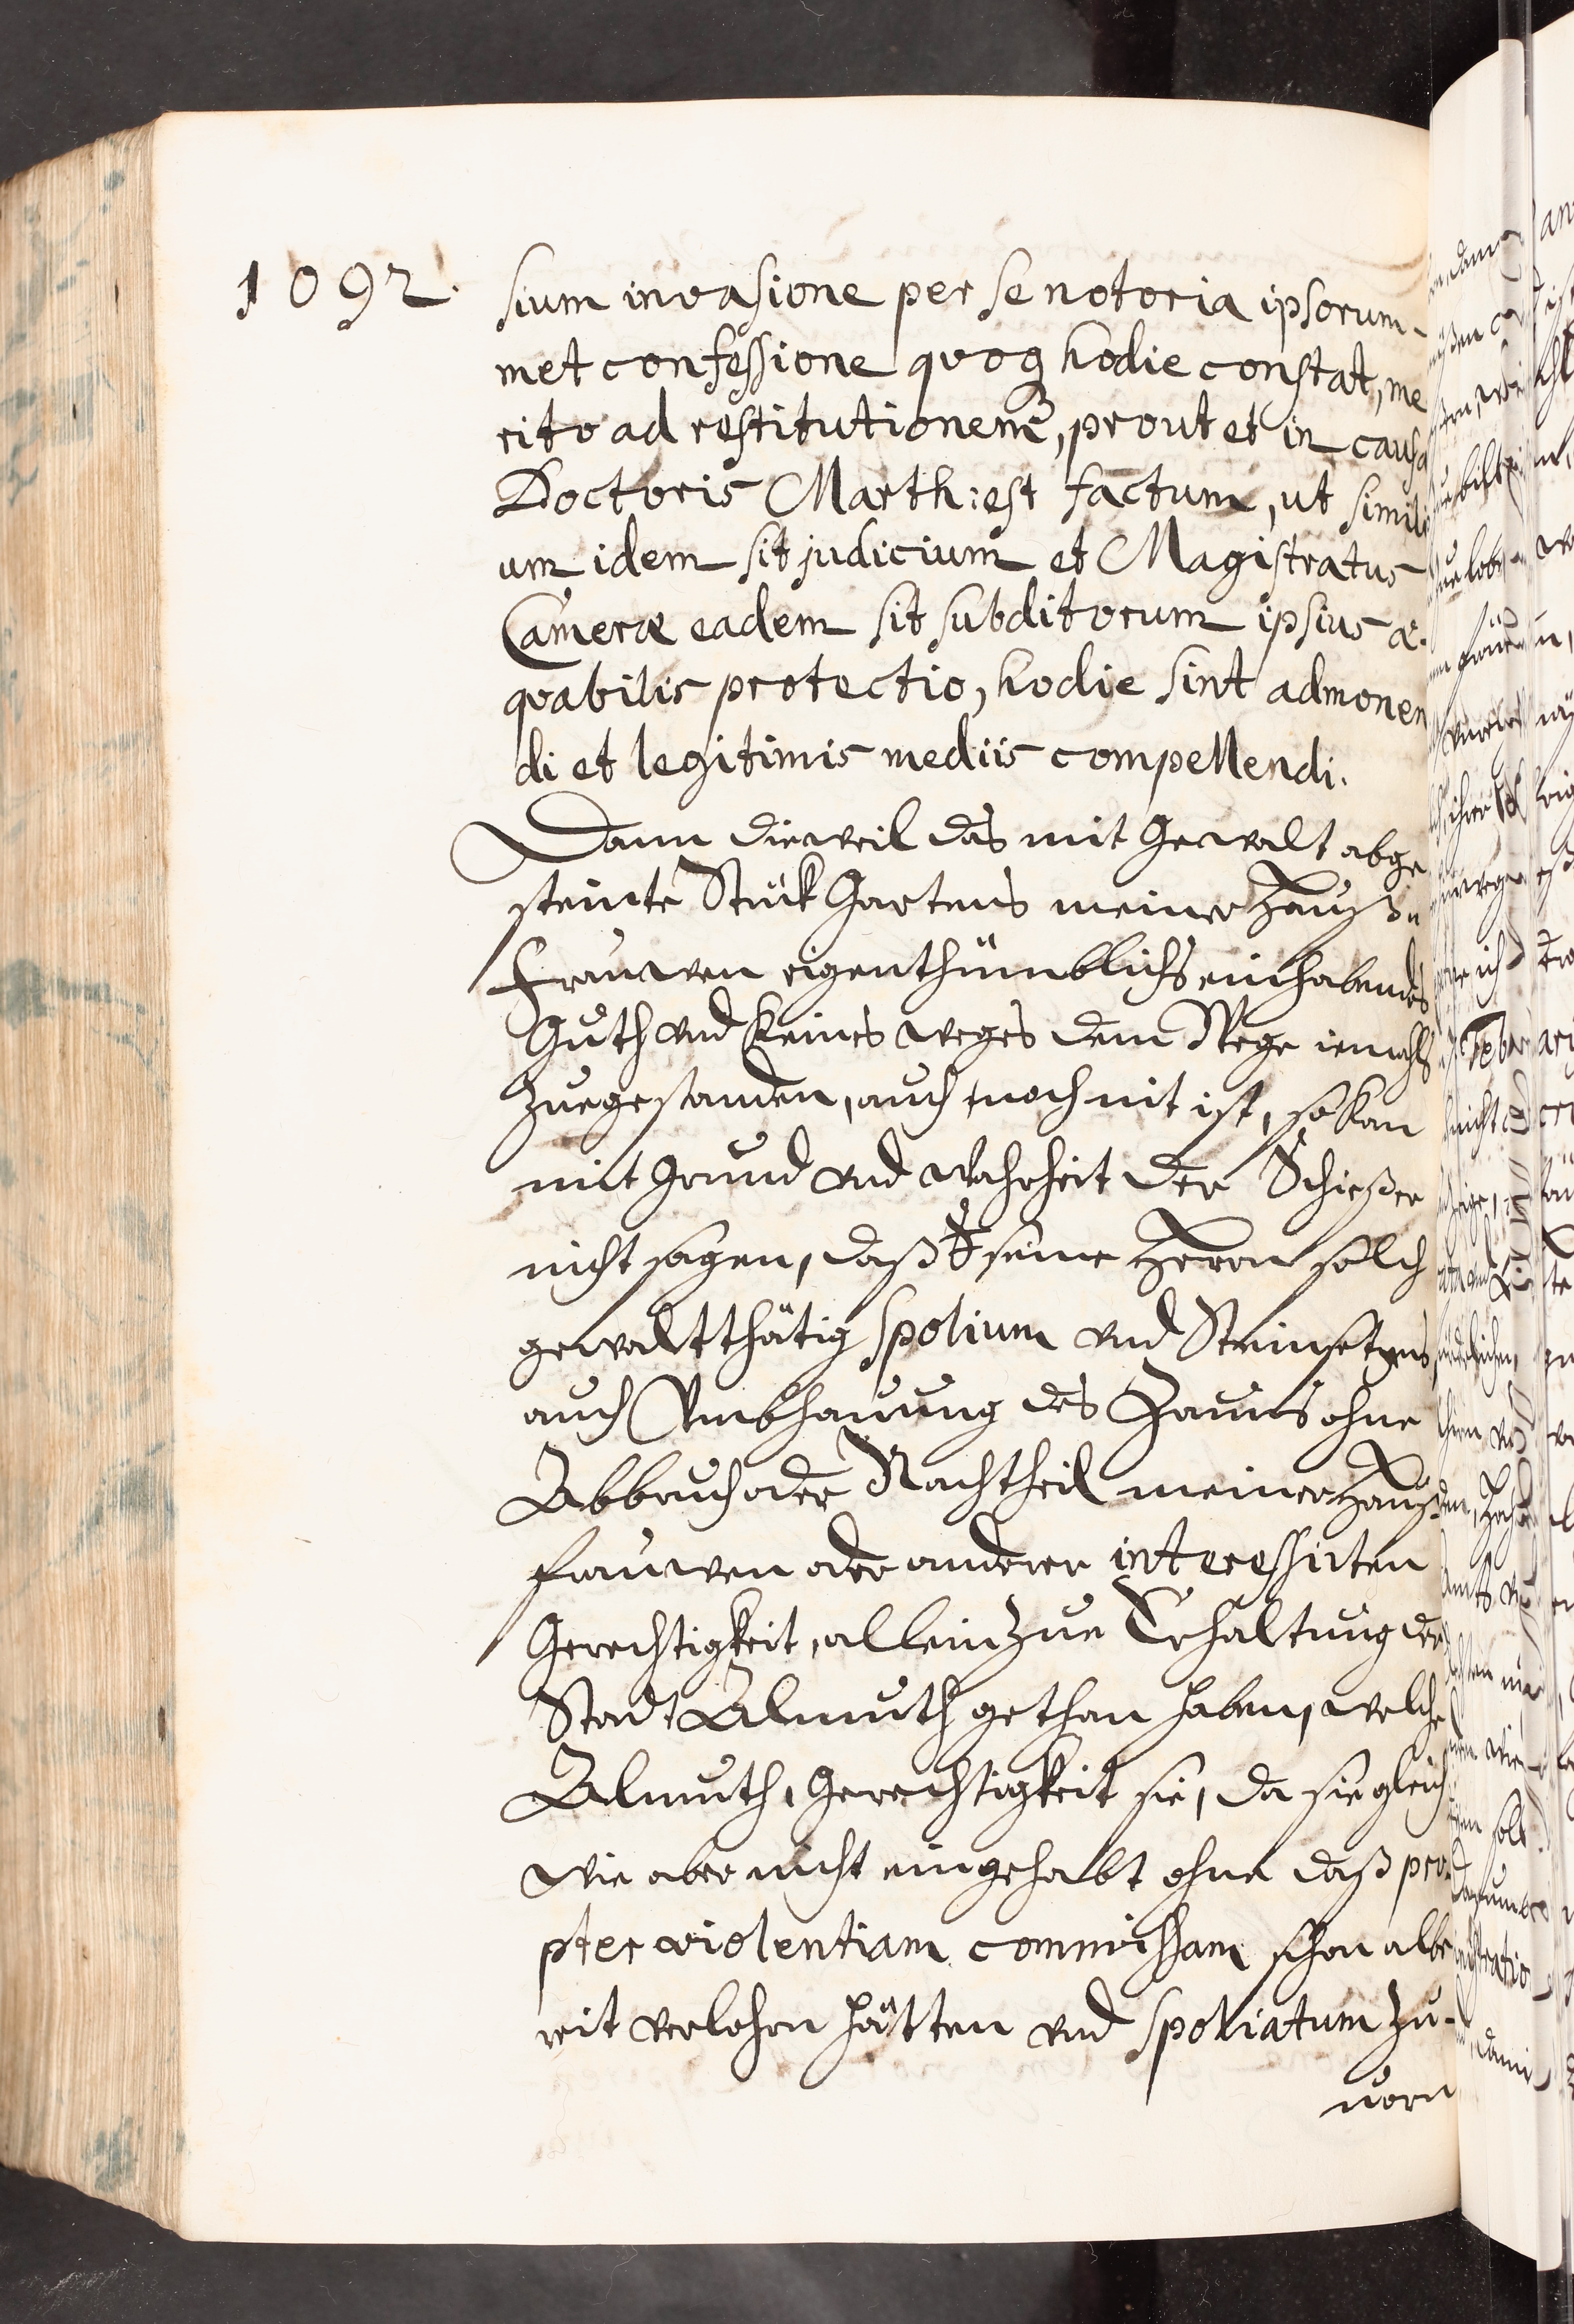 1092.
sium invasione per se notoria ipsorum-
met confessione quoq hodie constat, me
rito ad restitutionem, prout et in causa
Doctoris Marth: est factum, ut simili
um idem sit judicium et Magistratus
Cameræ eadem sit subditorum ipsius æ-
quabilis protectio, hodie sint admonen
di et legitimis mediis compellendi.
Dann dieweil das mit Gewalt abge
steinte Stük Gartens meiner Hauß-
frauwen eigenthümblichs einhabendes
Guth vnd keines weges dem Wege iemahls
zuegestanden, auch noch nit ist, so kan
mit Grund vnd Wahrheit der Schießer
nicht sagen, daß seine Herrn solch
gewaltthätig spolium vnd Steinsetzens,
auch Vmbhauung des Zauns ohne
Abbruch oder Nachtheil meiner Hauß-
frauwen oder anderer interessirten
Gerechtigkeit, allein zue Erhaltung der
Stadt Almuth gethan haben, welche
Almuth, Gerechtigkeit sie, da sie gleich
wie aber nicht eingehabt ohne daß pro-
pter violentiam commissam schon alle
reit verlohrn hätten vnd spoliatum zu-
uorn